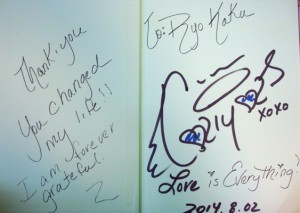 Thank you
You changed
my life!!
I am forever
grateful.
To: Ryo Kaku
214
xoxo
Love is Everything!
2014.8.02